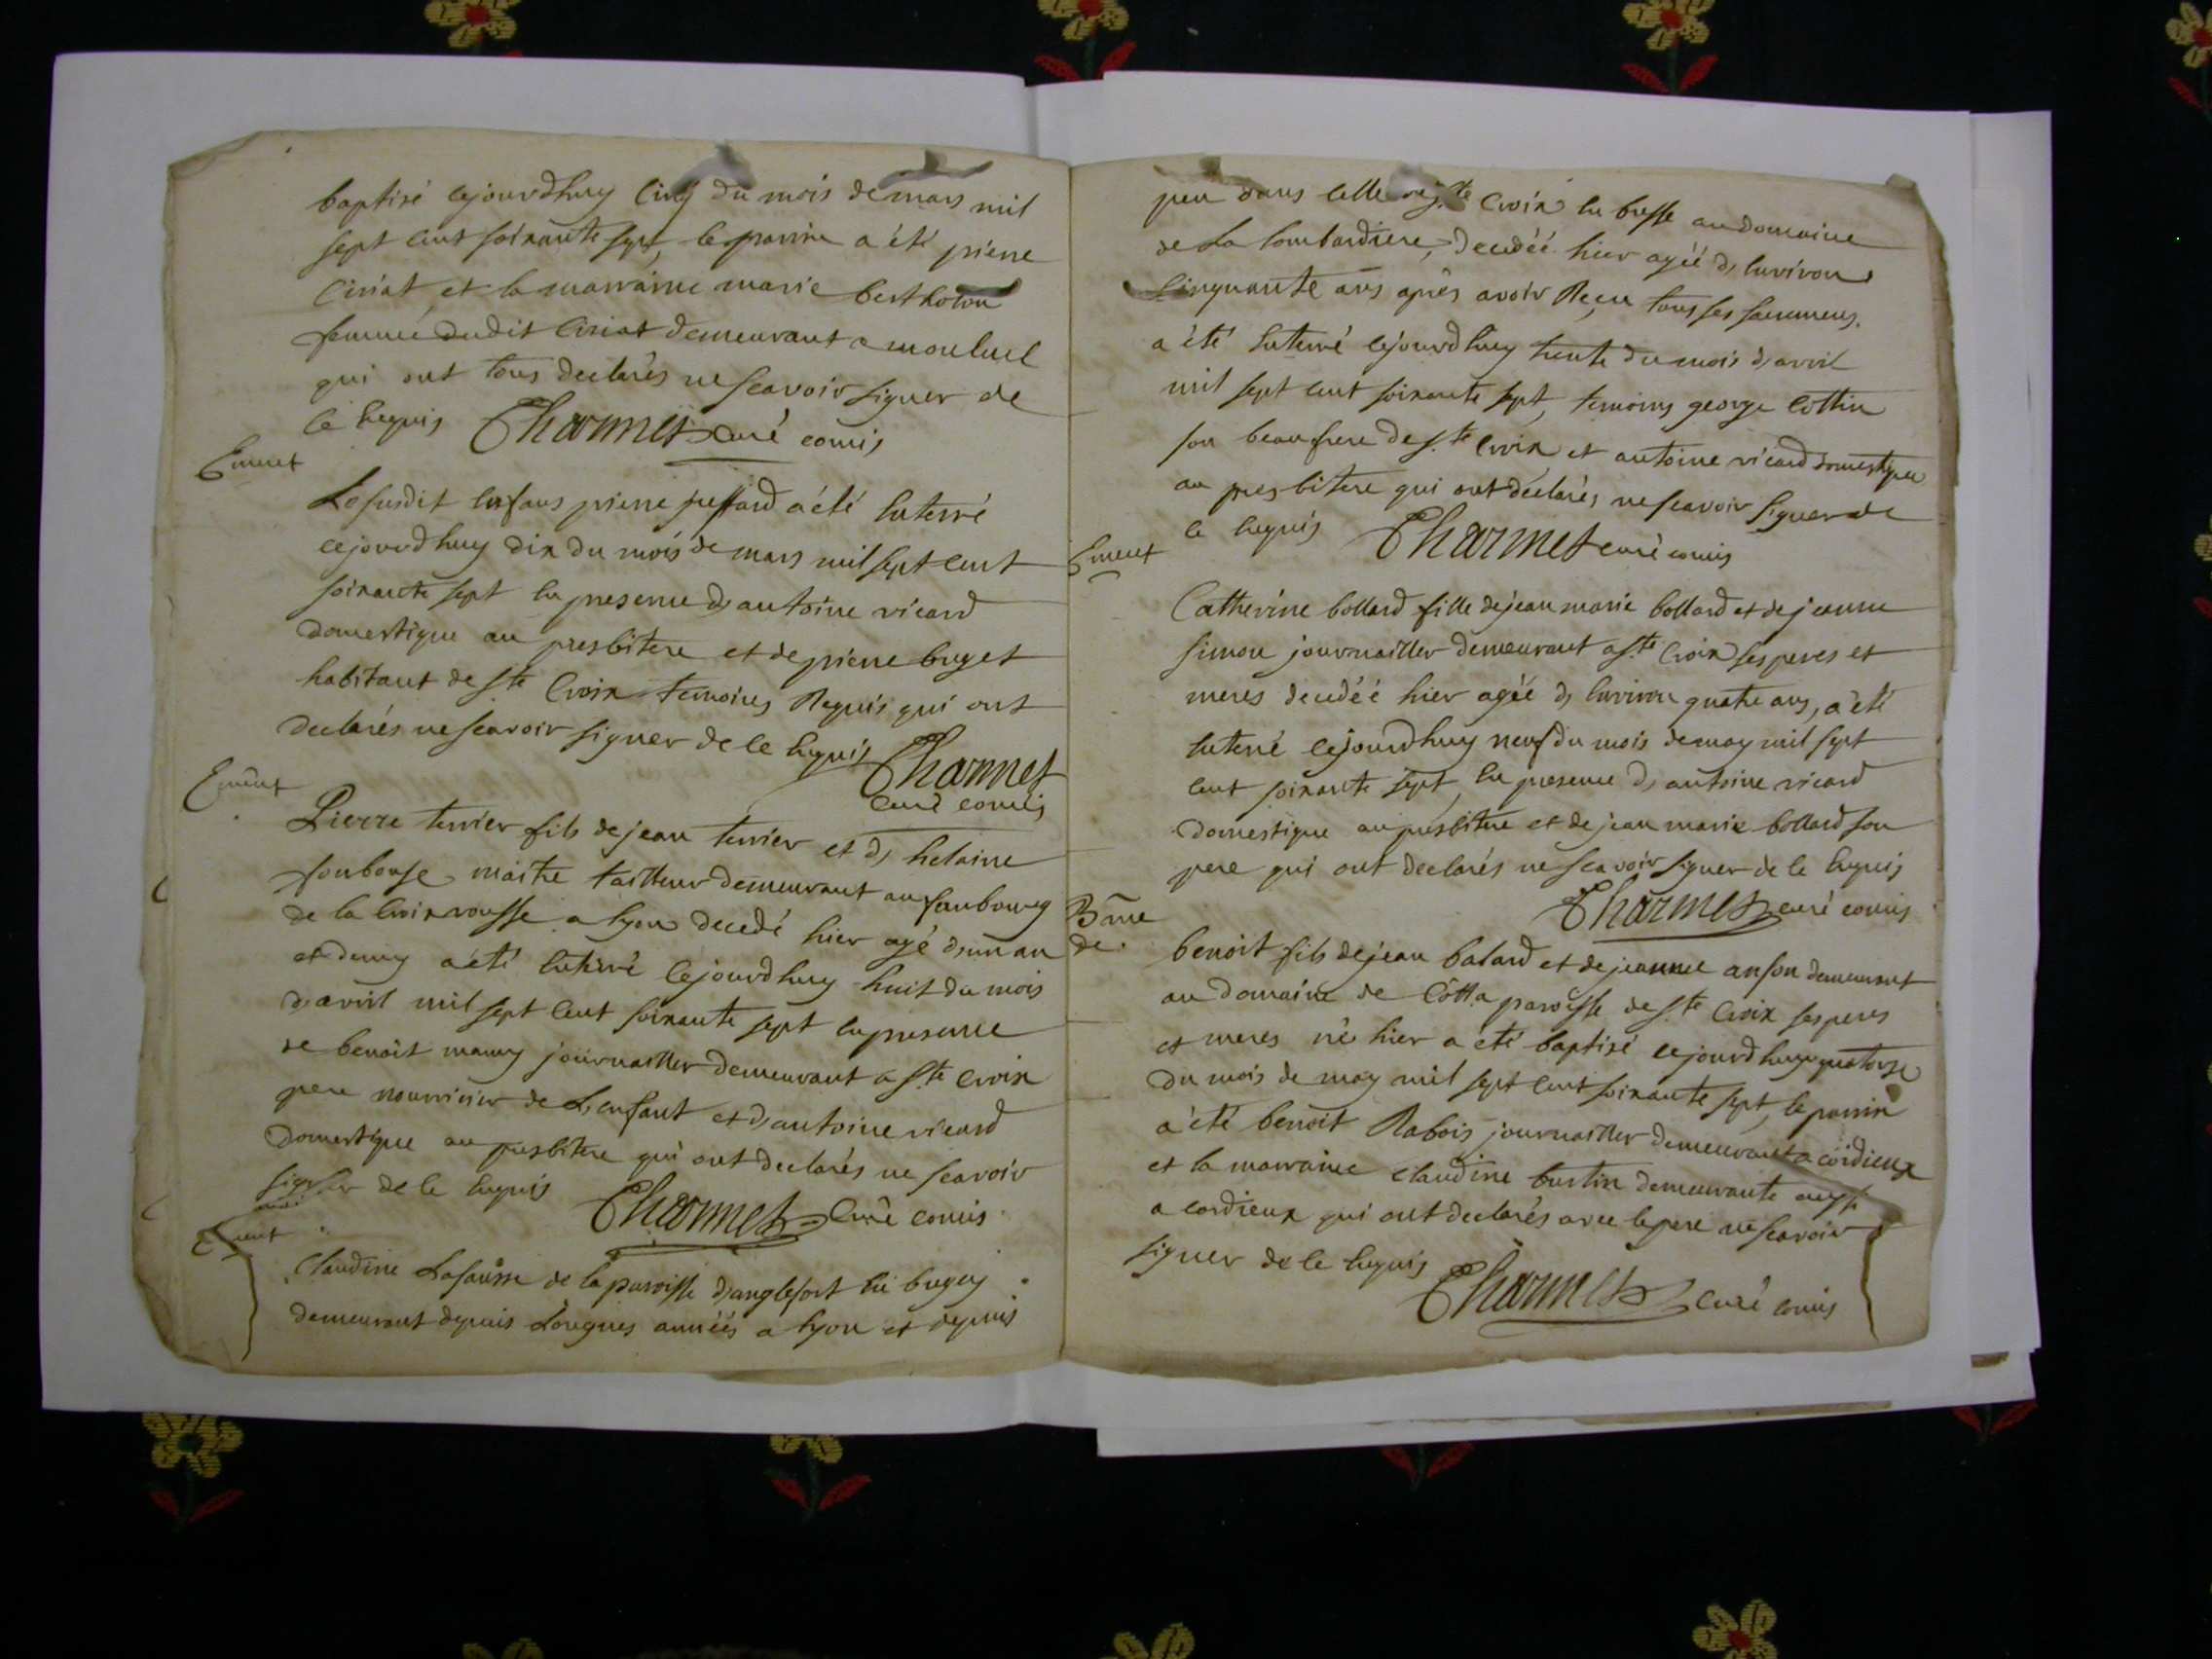 baptisé cejourdhuy cinq du mois de mars mil
sept cent soixante sept, le parrin a été pierre
Ciriat et la marraine marie bertholon
femme dudit Ciriat demeurant a monluel
qui ont tous declarés ne scavoir signer de
ce enquis Charmet curé comis
E ment
Le susdit enfans pierre a été enterré
cejourdhuy dix du mois de mars mil sept cent
soixante sept en presence d, antoine ricard
domestique au presbitere et de pierre buget
habitant de Ste Croix temoins Requis qui ont
declarés ne scavoir signer de ce enquis Charmet
curé comis
E ment
Pierre terrier fils de jean terrier et d, helaine
maitre tailleur demeurant au faubourg
de la Croix rousse a lyon decedé hier agé d,un an
et demy a été enterré cejourdhuy huit du mois
d,avril mil sept cent soixante sept en presence
de benoit many journallier demeurant a Ste Croix
pere nourricier de L,enfant et d,antoine ricard
domestique au presbitere qui ont declarés ne scavoir
signer de ce enquis Charmet Curé comis
E ment
Claudine de la paroisse d,anglefort en bugey
demeurant depuis Longues années a lyon et depuis
peu dans cette Ste Croix en bresse au domaine
de La Lombardiere, decedéé hier agéé d, environ
Cinquante ans aprés avoir Reçu tous ses sacremens.
a été enterré cejourdhuy trente du mois d,avril
mil sept cent soixante sept, temoins george Cottin
son beaufrere de Ste Croix et antoine ricard domestique
au presbitere qui ont declarés ne scavoir signer de
ce enquis Charmet curé comis
E ment
Catherine bollard fille de jean marie bollard et de jeanne
simon journallier demeurant a Ste Croix ses peres et
meres decedéé hier agéé d, environ quatre ans, a été
enterré cejourdhuy neuf du mois de may mil sept
cent soixante sept, en presence d, antoine ricard
domestique au presbitere et de jean marie bollard son
pere qui ont declarés ne scavoir signer de ce enquis
Charmet curé comis
Bme
de.
benoit fils de jean balard et de jeanne anson demeurant
au domaine de Cotta paroisse de Ste Croix ses peres
et meres né hier a été baptisé cejourdhuy quatorze
du mois de may mil sept cent soixante sept, le parrin
a été benoit Rabois journallier demeurant a cordieux
et la marraine claudine burtin demeurante aussi
a cordieux qui ont declarés avec le pere ne scavoir
signer de ce enquis Charmet curé comis